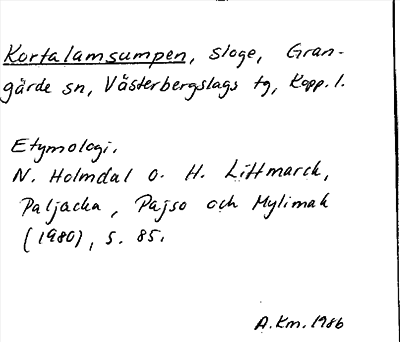 Kortalamsumpen, sloge, Gran-
gärde sn, Västerbergslags tg, Kopp. l.
Etymologi.
N. Holmdal o. H. Littmarck,
Paljacka, Pajso och Mylimak
(1980), s. 85.
A.Km. 1986